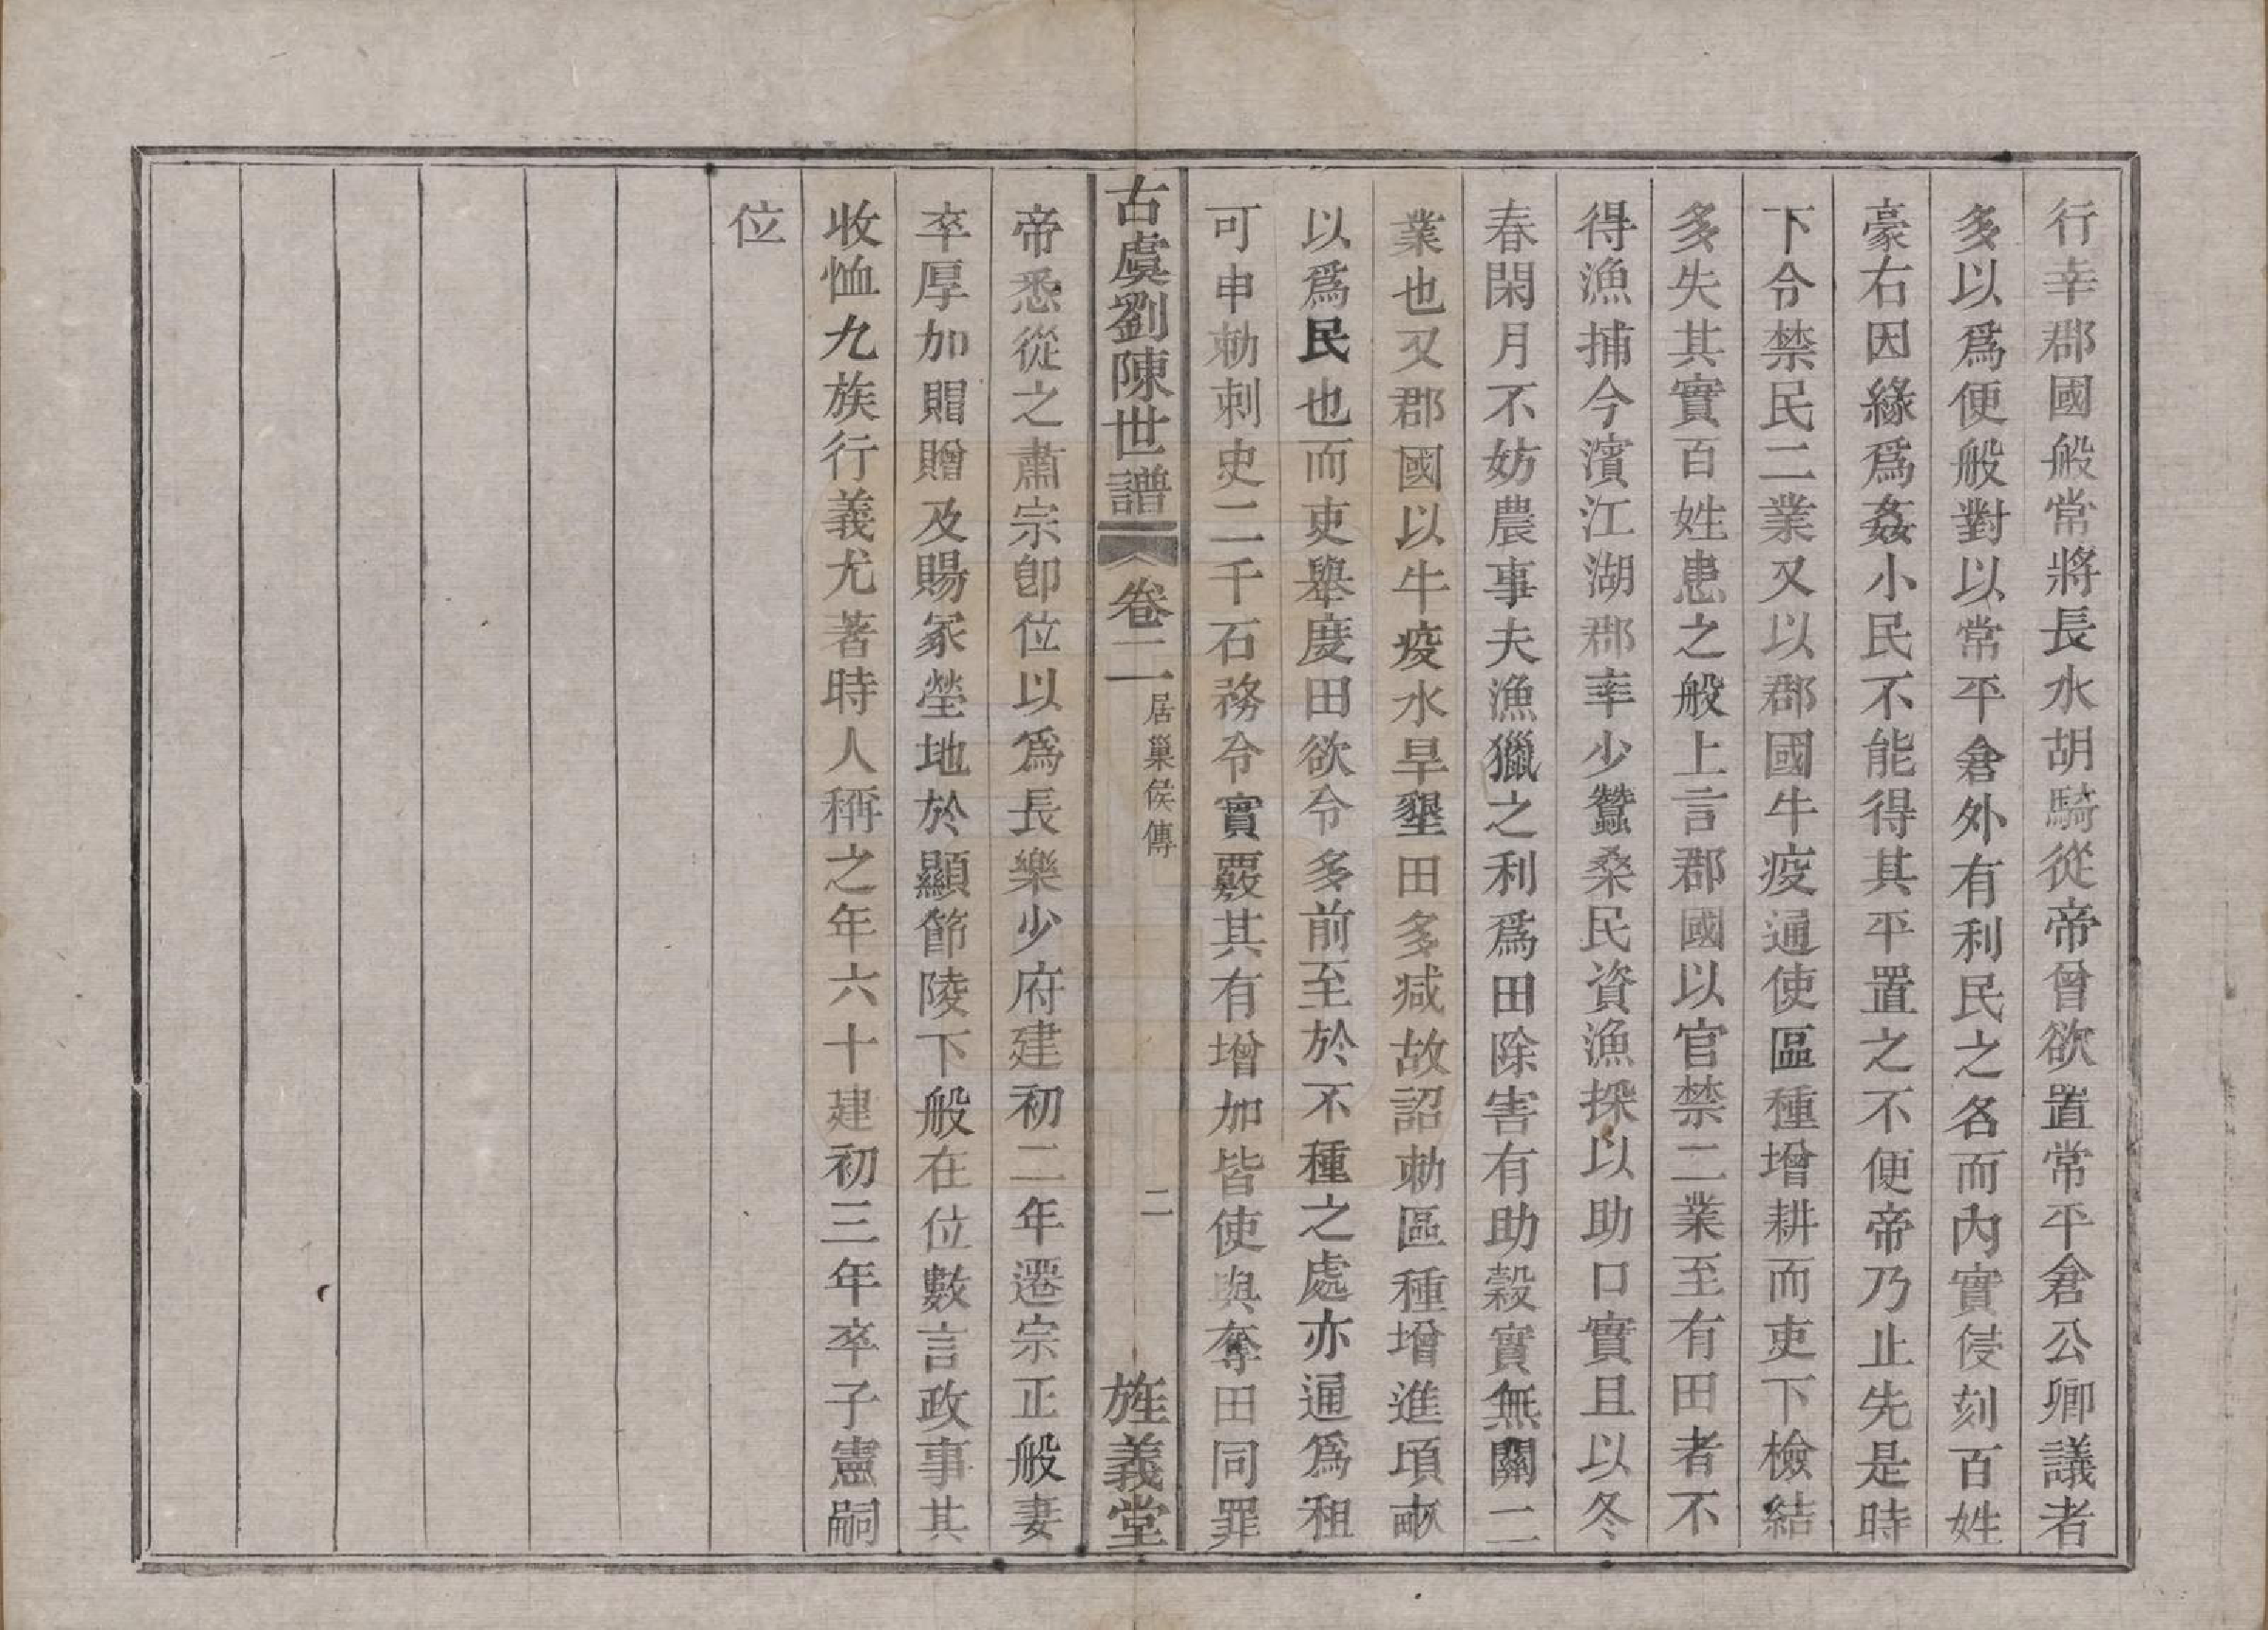 行幸郡國般常將長水胡騎從帝曾欲置常平倉公卿議者
多以爲便般對以常平倉外有利民之名而內實侵刻百姓
豪右因緣爲姦小民不能得其平置之不便帝乃止先是時
下令禁民二業又以郡國牛疫通使區種增耕而吏下檢結
多失其實百姓患之般上言郡國以官禁二業至有田者不
得漁捕今濱江湖郡率少蠶桑民資漁採以助口實且以冬
春閑月不妨農事夫漁獵之利爲田除害有助穀實無關二
業也又郡國以牛疫水旱墾田多減故詔勅區種增進頃畝
以爲民也而吏舉度田欲令多前至於不種之處亦通爲租
可申勅刺史二千石務令實覈其有增加皆使與奪田同罪
古虞劉陳世譜 卷二 居巢侯傳 二 旌義堂
帝悉從之肅宗卽位以爲長樂少府建初二年遷宗正般妻
卒厚加賵贈及賜冢塋地於顯節陵下般在位數言政事其
收恤九族行義尤著時人稱之年六十建初三年卒子憲嗣
位